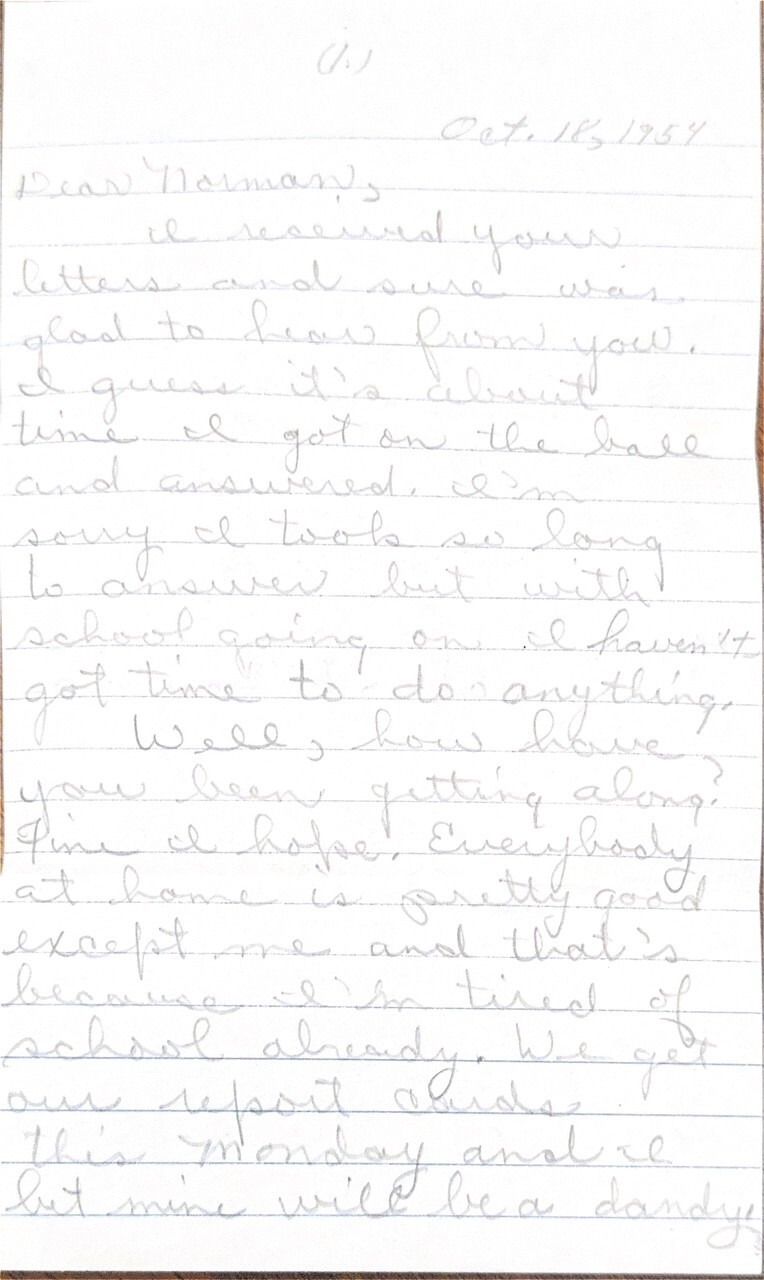 (1.)
Oct. 18, 1954
Dear Norman,
I received your
letters and sure was
glad to hear from you.
I guess it's about
time I got on the ball
and answered. I'm
sorry I took so long
to answer but with
school going on I haven't
got time to do anything.
Well, how have
you been getting along?
Fine I hope. Everybody
at home is pretty good
except me and that's
because I'm tired of
school already. We get
our report cards
this Monday and I
bet mine will be a dandy.